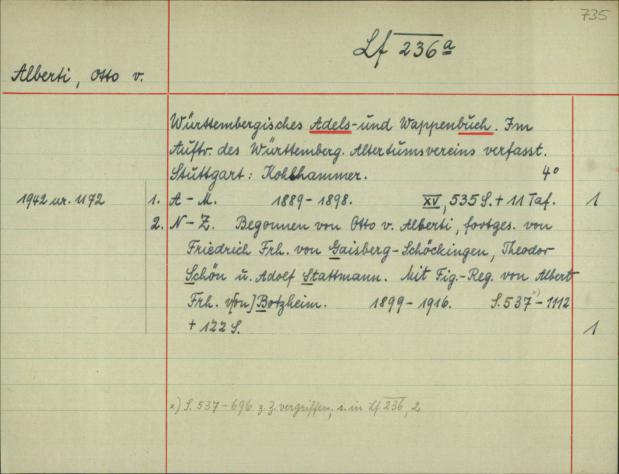 735
Lf 236a
Alberti, Otto v.
Württembergisches Adels- und Wappenbuch. Im
Auftr. des Württemberg. Altertumsvereins verfasst.
Stuttgart: Kohlhammer. 4°
1942 nr. 1172 1. A-M. 1889-1898. XV, 535 S. + 11 Taf. 1
2. N-Z. Begonnen von Otto v. Alberti, fortges. von
Friedrich Frh. von Gaisberg-Schöckingen, Theodor
Schön u. Adolf Stattmann. Mit Fig.-Reg. von Albert
Frh. v[on] Botzheim. 1899-1916. S. 537-1112 x)
+ 122 S. 1
x) S. 537-696 z. Z. vergriffen, s. in Lf 236, 2